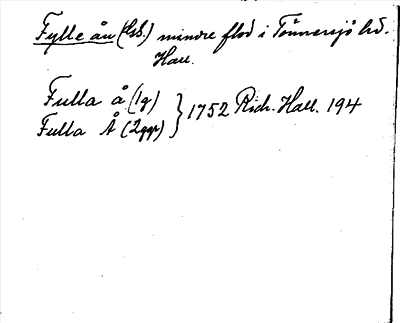 Fylle ån (Hsb.) mindre flod i Tönnersjö hd.
Hall.
Fulla å (1g)
Fulla Å (2ggr) } 1752 Rich. Hall. 194